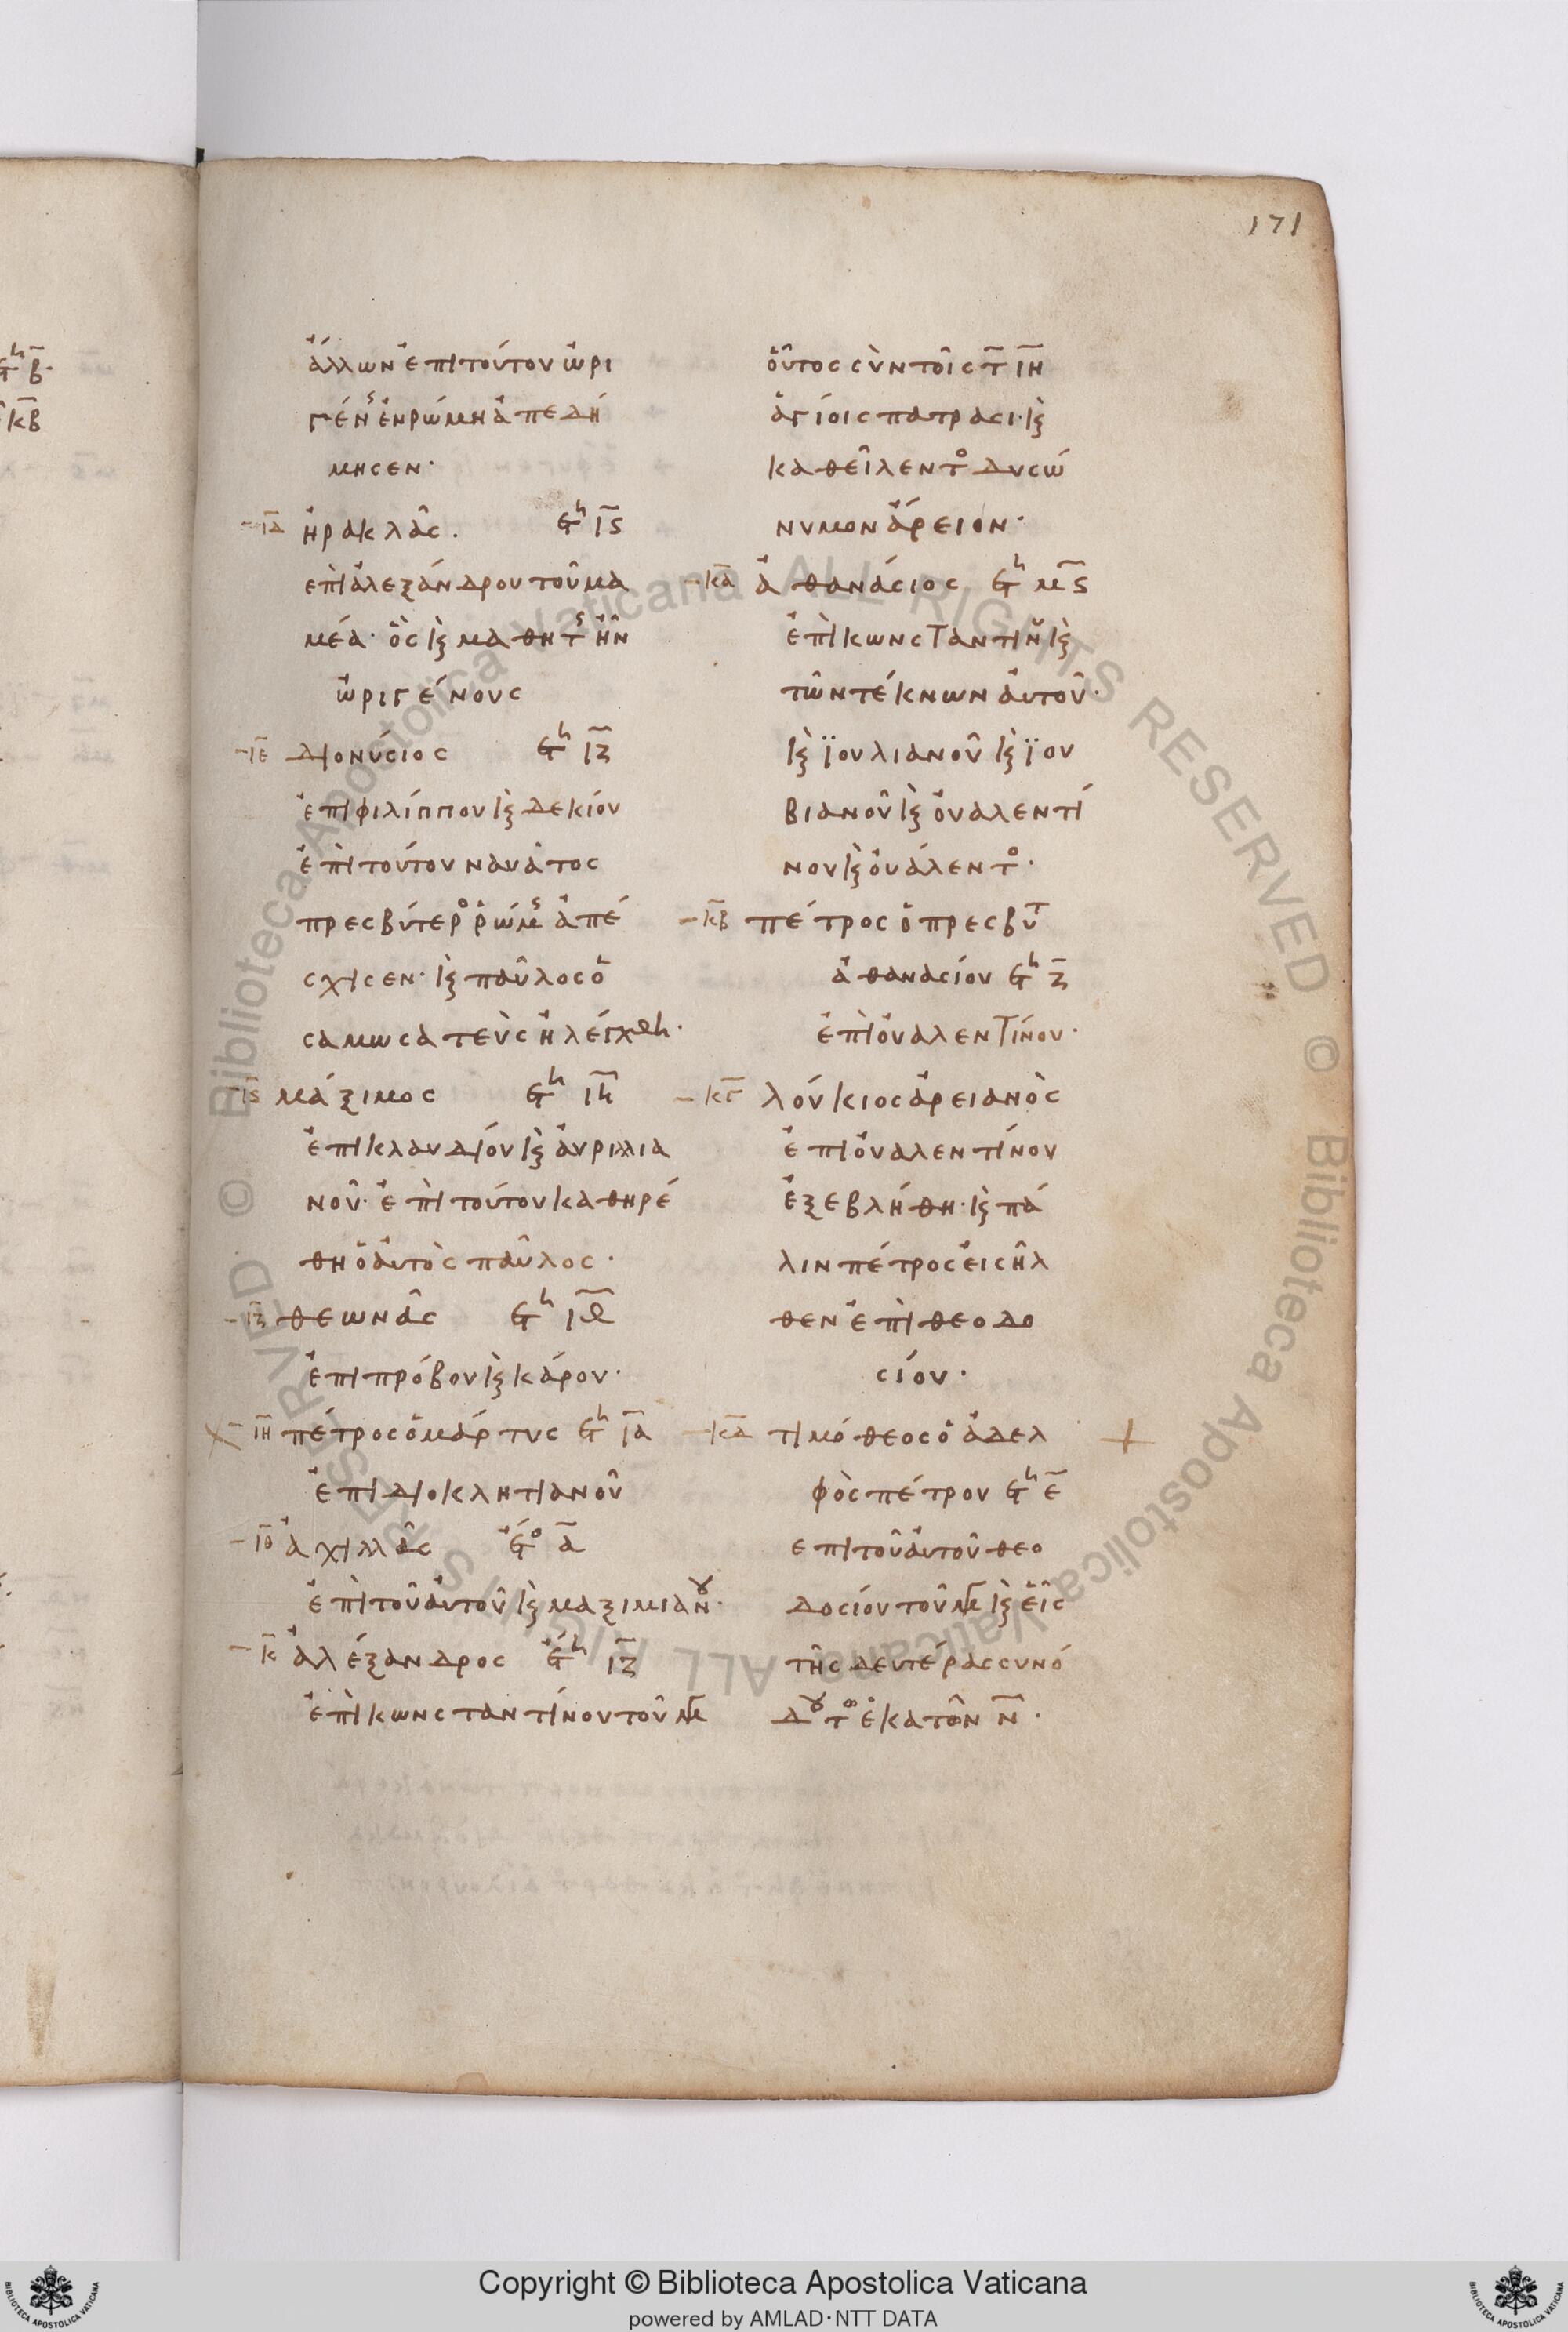 171
ἄλλων ἐπὶ τούτου ὠρι
γέν ἐν ρώμη ἀπεδή
μησεν·
ιδ ἡρακλᾶς. ἔτη ις
ἐπὶ ἀλεξάνδρου τοῦ μα
μέα· ὃς καὶ μαθητ ἦν
ὠριγένους
ιε διονύσιος ἔτη ιζ
ἐπὶ φιλίππου καὶ δεκίου
ἐπὶ τούτου ναυάτος
πρεσβύτερο ρώμ ἀπέ
σχισεν· καὶ παῦλος ὁ
σαμωσατεὺς ἠλέγχθη·
ις μάξιμος ἔτη ιη
ἐπὶ κλαυδίου καὶ αὐριλλια
νοῦ· ἐπὶ τούτου καθηρέ
θη ὁ αὐτὸς παῦλος·
ιζ θεωνᾶς ἔτη ιθ
ἐπὶ πρόβου καὶ κάρου·
ιη πέτρος ὁ μάρτυς ἔτη ια
ἐπὶ διοκλητιανοῦ
ιθ ἀχιλλᾶς ἔτο α
ἐπὶ τοῦ αὐτοῦ καὶ μαξιμιανου·
κ ἀλέξανδρος ἔτη ιζ
ἐπὶ κωνσταντίνου τοῦ με
οὗτος σὺν τοῖς τιη
ἁγίοις πατράσι· καὶ
καθεῖλεν το δυσώ
νυμον ἄρειον·
κα ἀθανάσιος ἔτη μς
ἐπὶ κωνσταντιν καὶ
τῶν τέκνων αὐτοῦ·
καὶ ϊουλιανοῦ καὶ ϊου
βιανοῦ καὶ οὐαλεντί
νου καὶ οὐάλεντο·
κβ πέτρος ὁ πρεσβυτ
ἀθανασίου ἔτη ζ
ἐπὶ οὐαλεντίνου·
κγ λούκιος ἀρειανὸς
ἐπὶ οὐαλεντίνου
ἐξεβλήθη· καὶ πά
λιν πέτρος εἰσῆλ
θεν ἐπὶ θεοδο
σίου·
κδ τιμόθεος ὁ ἀδελ
φὸς πέτρου ἔτη ε
ἐπὶ τοῦ αὐτοῦ θεο
δοσίου τοῦ με καὶ εἷς
τῆς δευτέρας συνό
δου τ ἑκατὸν ν·